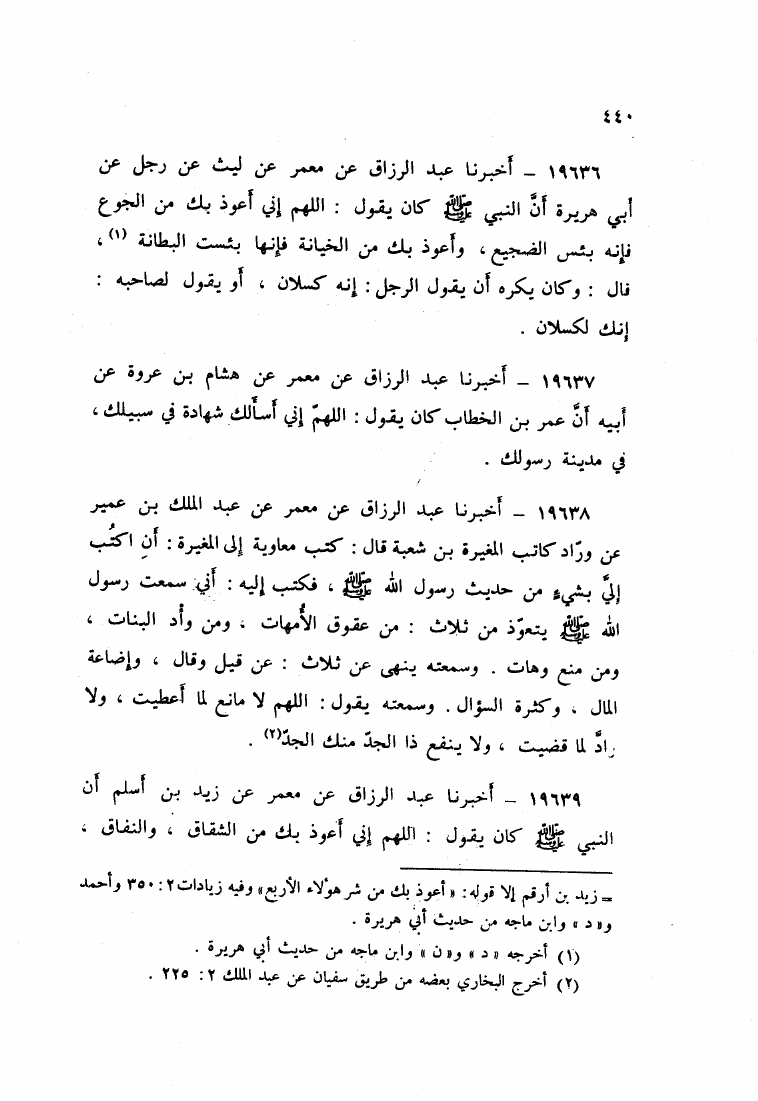 ٤٤٠
١٩٦٣٦ – أخبرنا عبد الرزاق عن معمر عن ليث عن رجل عن
أبي هريرة أنَّ النبي ﷺ كان يقول : اللهم إني أعوذ بك من الجوع
فإنه بئس الضجيع ، وأعوذ بك من الخيانة فإنها بئست البطانة (١) ،
قال : وكان يكره أن يقول الرجل : إنه كسلان ، أو يقول لصاحبه :
إنك لكسلان .
١٩٦٣٧ – أخبرنا عبد الرزاق عن معمر عن هشام بن عروة عن
أبيه أنَّ عمر بن الخطاب كان يقول : اللهمّ إني أسألك شهادة في سبيلك ،
في مدينة رسولك .
١٩٦٣٨ – أخبرنا عبد الرزاق عن معمر عن عبد الملك بن عمير
عن ورّاد كاتب المغيرة بن شعبة قال : كتب معاوية إلى المغيرة : أن اكتُب
إليَّ بشيءٍ من حديث رسول الله ﷺ ، فكتب إليه : أني سمعت رسول
الله ﷺ يتعوّذ من ثلاث : من عقوق الأُمهات ، ومن وأد البنات ،
ومن منع وهات . وسمعته ينهى عن ثلاث : عن قيل وقال ، وإضاعة
المال ، وكثرة السؤال . وسمعته يقول : اللهم لا مانع لما أعطيت ، ولا
رادَّ لما قضيت ، ولا ينفع ذا الجدّ منك الجدّ(٢) .
١٩٦٣٩ – أخبرنا عبد الرزاق عن معمر عن زيد بن أسلم أن
النبي ﷺ كان يقول : اللهم إني أعوذ بك من الشقاق ، والنفاق ،
= زيد بن أرقم إلا قوله : « أعوذ بك من شر هؤلاء الأربع » وفيه زيادات ٢ : ٣٥٠ وأحمد
و« د » وابن ماجه من حديث أبي هريرة .
(١) أخرجه « د » و« ن » وابن ماجه من حديث أبي هريرة .
(٢) أخرج البخاري بعضه من طريق سفيان عن عبد الملك ٢ : ٢٢٥ .